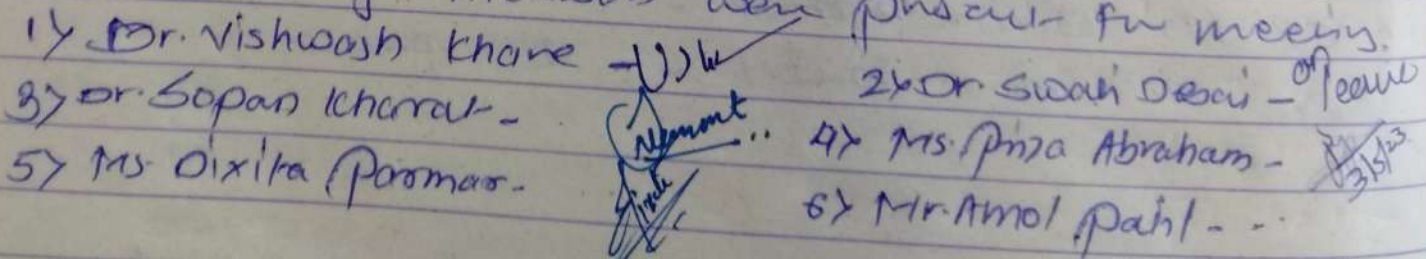 were present for meeting.
1) Dr. Vishwash Khare -
2) Dr. Swati Desai - on leave
3) Dr. Sopan Kharat -
4) Ms. Priya Abraham - 3/5/23
5) Ms Dixita Parmar -
6) Mr. Amol Patil - -